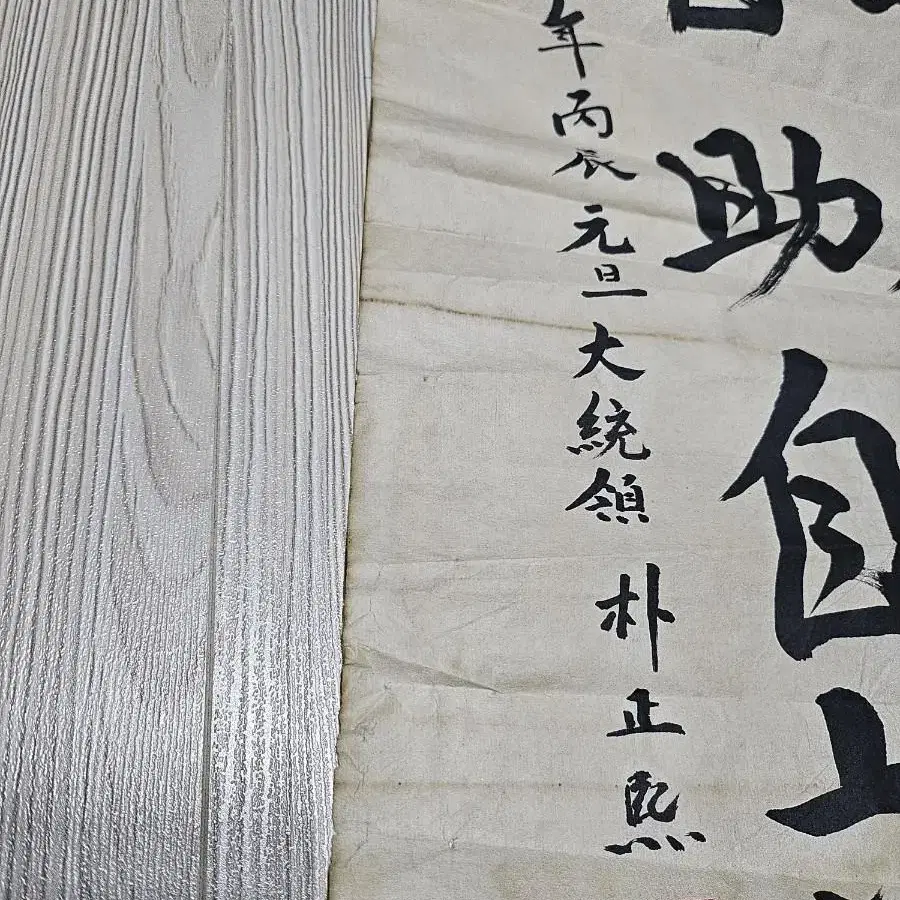 助自
年丙辰元旦大統領 朴正熙